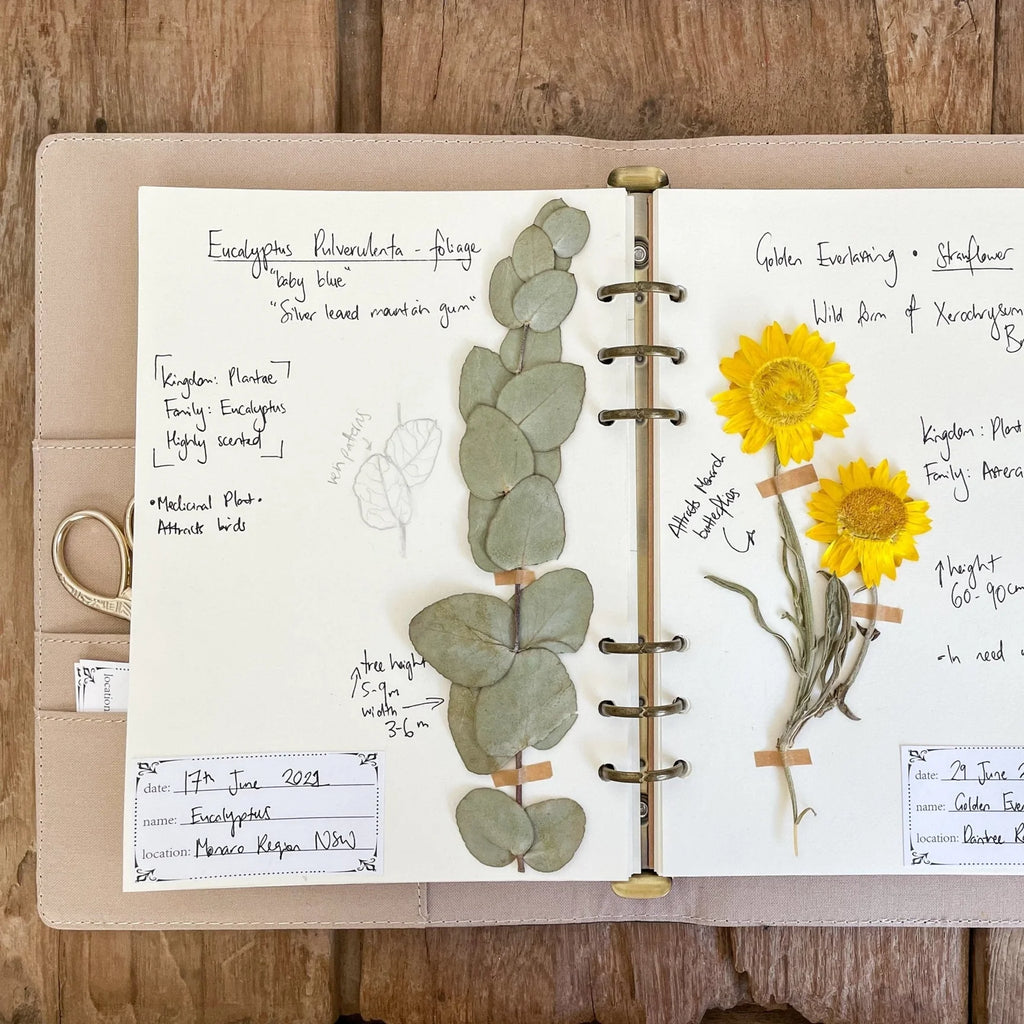 Eucalyptus Pulverulenta - foliage
"baby blue"
"Silver leaved mountain gum"
Kingdom: Plantae
Family: Eucalyptus
Highly scented
• Medicinal Plant •
Attracts birds
vein patterns
↑ tree height
5-9m
width →
3-6m
date: 17th June 2021
name: Eucalyptus
location: Monaro Region NSW
location
Golden Everlasting • Strawflower
Wild form of Xerochrysum
Attracts Monarch
butterflies
Kingdom: Plant
Family: Astera
↑ height
60-90cm
- In need
date: 29 June 2
name: Golden Ever
location: Daintree R